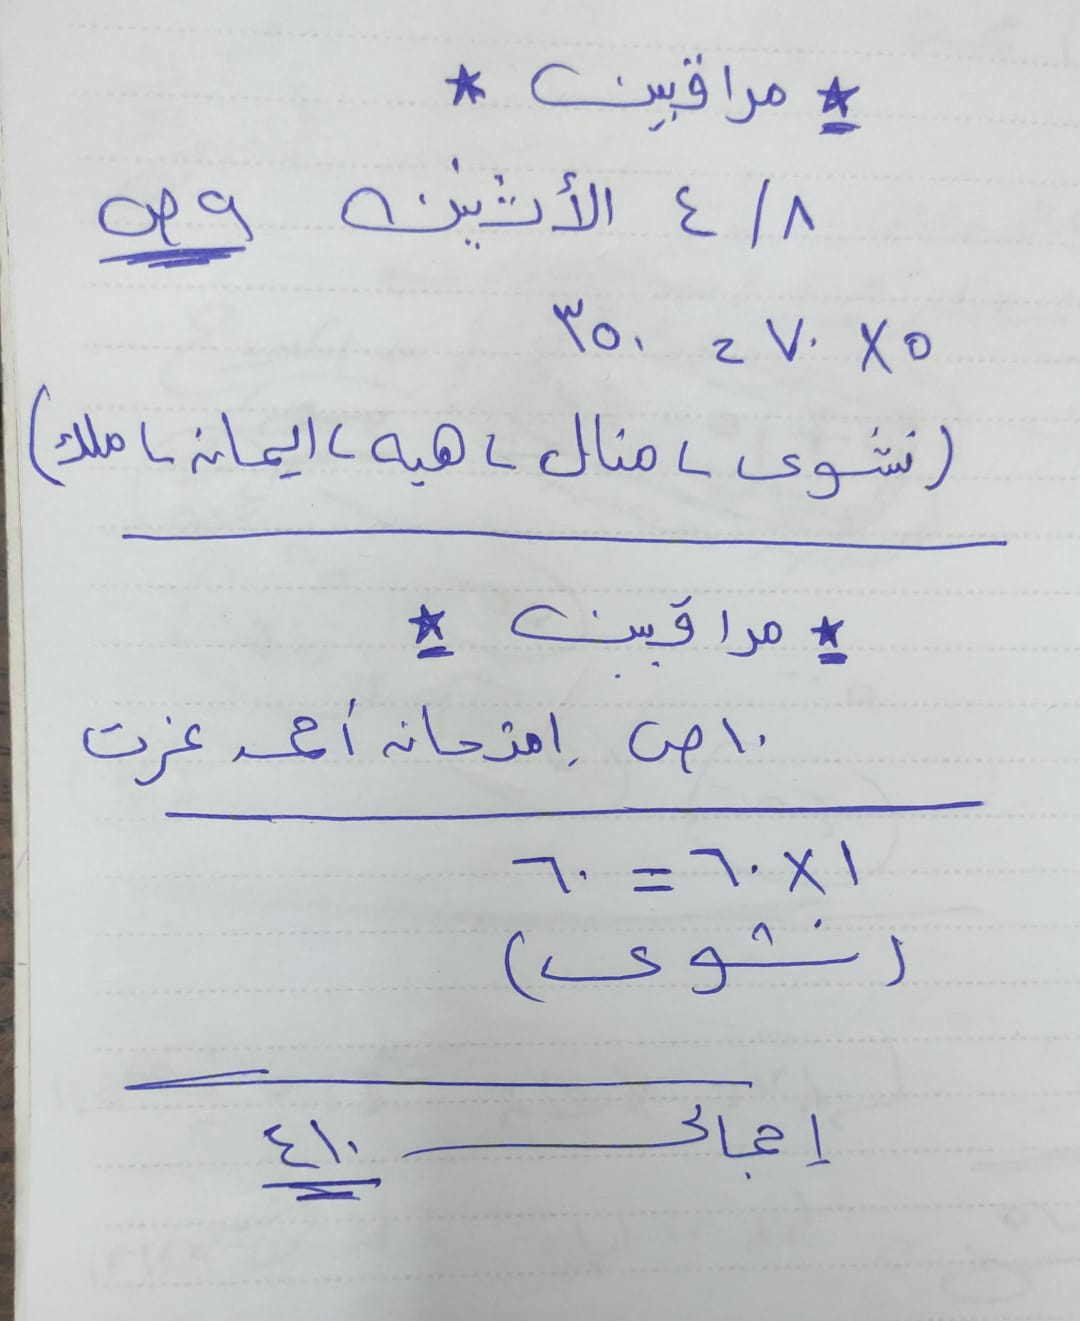 * مراقبين *
٨/ ٤ الأثنين ٩ص
٥ X ٧٠ = ٣٥٠
(نشوى، منال، هبه، ايمان، ملك)
* مراقبين *
١٠ص إمتحان أحمد عزت
١ X ٦٠ = ٦٠
(نشوى)
إجمالى ٤١٠